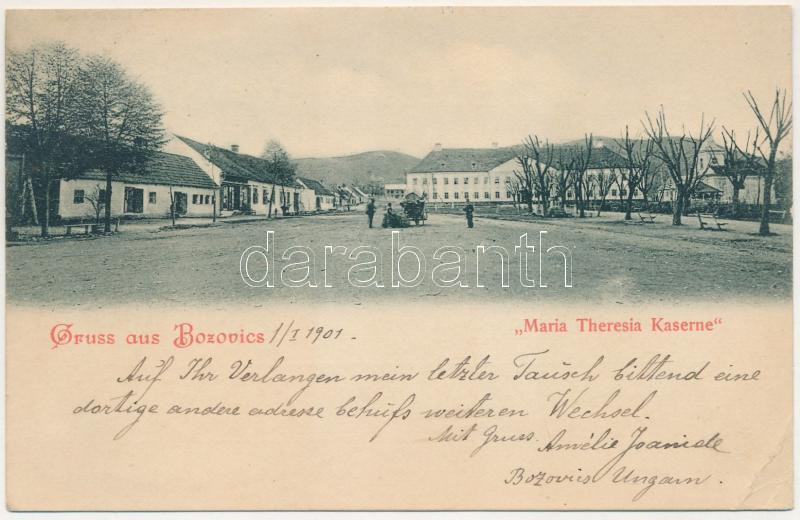 darabanth
Gruss aus Bozovics 1/I 1901. „Maria Theresia Kaserne“
Auf Ihr Verlangen mein letzter Tausch bittend eine
dortige andere adresse behufs weiteren Wechsel.
Mit Gruss. Amélie
Bozovics Ungarn.